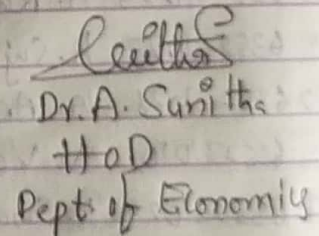 Dr. A. Sunitha
HOD
Dept. of Economics